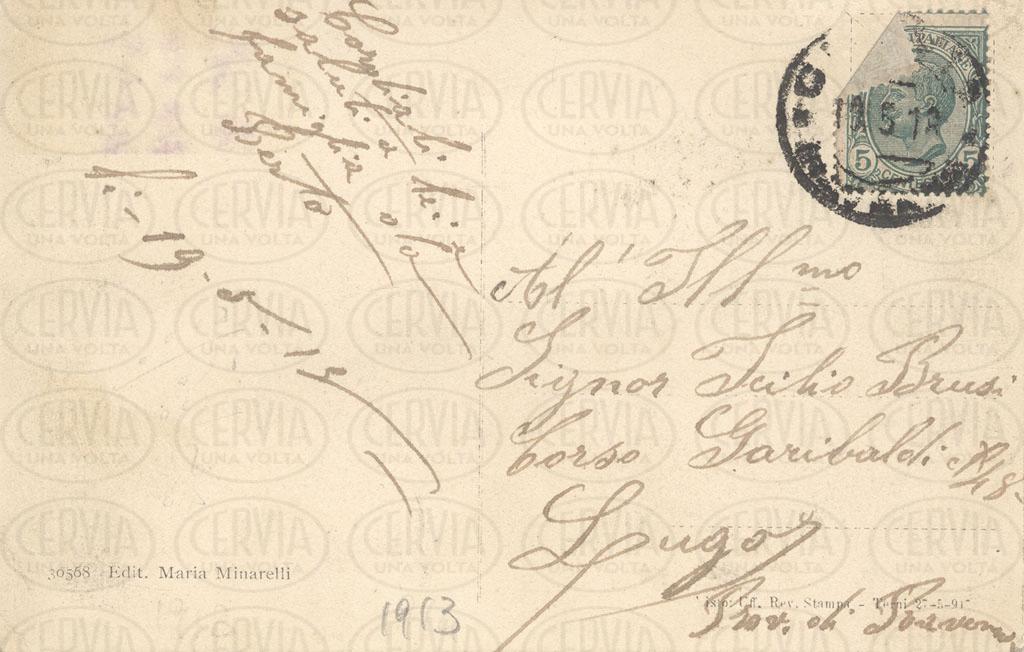 Cordiali lei
saluti a
famiglia
Berto
li - 19-5-13
Al' Ill mo
Signor Icilio Brusi
Corso Garibaldi N 48
Lugo
Prov. di Ravenna
5 5
30568 Edit. Maria Minarelli
1913
Uff. Rev. Stampa - Terni 27-5-91
CERVIA
UNA VOLTA